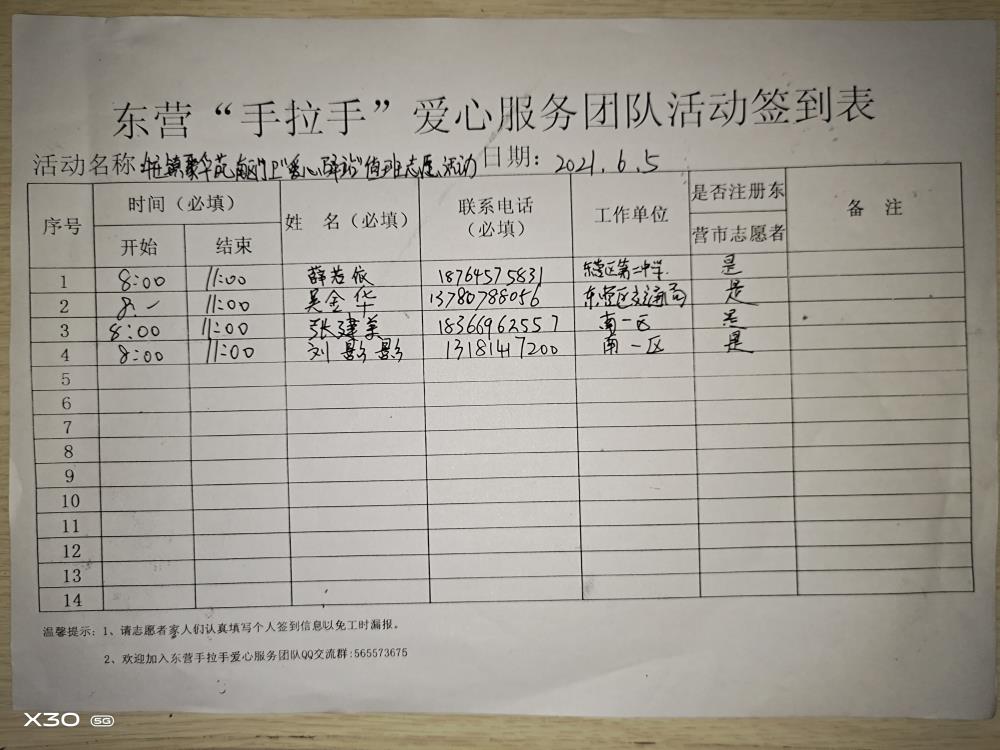 东营“手拉手”爱心服务团队活动签到表
活动名称:胜镇聚华苑南门“爱心驿站”值班志愿活动 日期: 2021.6.5
序号 时间（必填） 姓 名（必填） 联系电话（必填） 工作单位 是否注册东营市志愿者 备 注
开始 结束
1 8:00 11:00 薛若依 18764575831 东营区第二中学 是
2 8:- 11:00 吴金华 13780788056 东营区交通局 是
3 8:00 11:00 张建美 18366962557 南一区 是
4 8:00 11:00 刘影影 13181417200 南一区 是
5
6
7
8
9
10
11
12
13
14
温馨提示: 1、请志愿者家人们认真填写个人签到信息以免工时漏报。
2、欢迎加入东营手拉手爱心服务团队QQ交流群:565573675
X30 5G